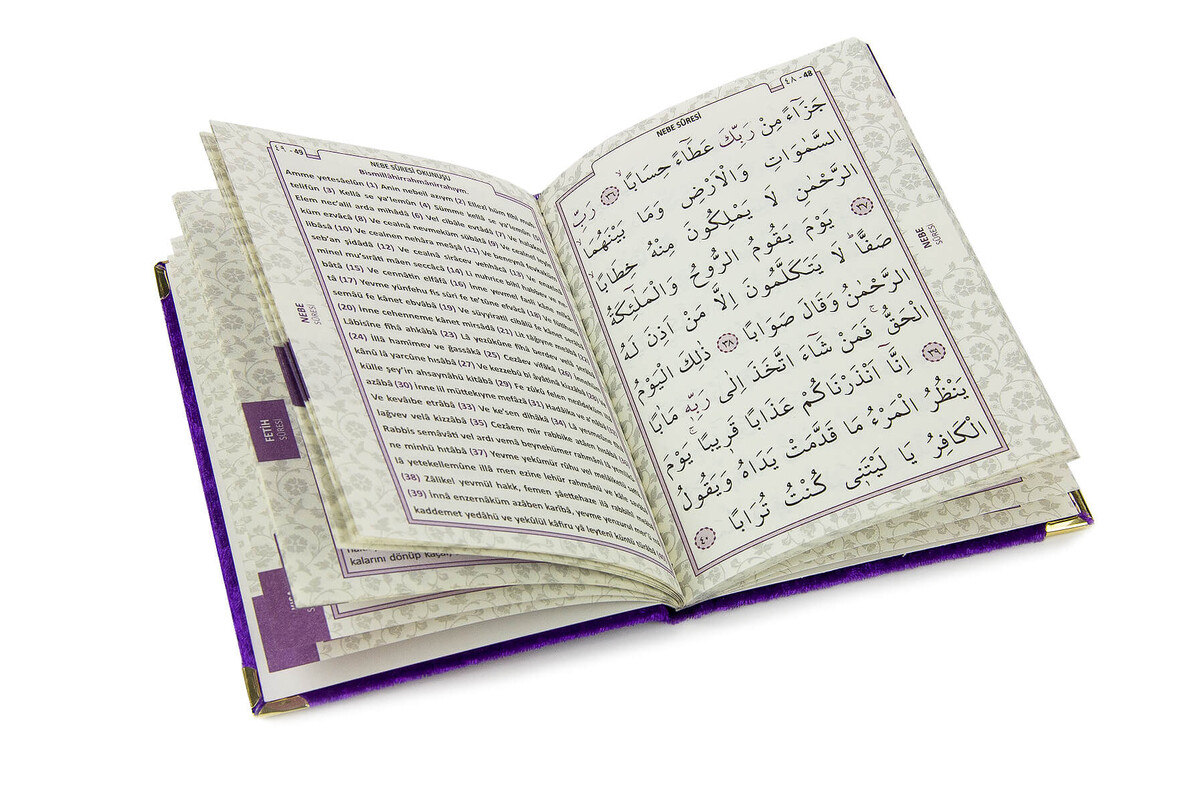 ٤٨ - 48
NEBE SÛRESİ
جَزَٓاءً مِنْ رَبِّكَ عَطَٓاءً حِسَابًاۙ ﴿٣٦﴾ رَبِّ
السَّمٰوَاتِ وَالْاَرْضِ وَمَا بَيْنَهُمَا
الرَّحْمٰنِ لَا يَمْلِكُونَ مِنْهُ خِطَابًاۚ
﴿٣٧﴾ يَوْمَ يَقُومُ الرُّوحُ وَالْمَلٰٓئِكَةُ
صَفًّاۜ لَا يَتَكَلَّمُونَ اِلَّا مَنْ اَذِنَ لَهُ
الرَّحْمٰنُ وَقَالَ صَوَابًا ﴿٣٨﴾ ذٰلِكَ الْيَوْمُ
الْحَقُّۚ فَمَنْ شَٓاءَ اتَّخَذَ اِلٰى رَبِّه۪ مَاٰبًا
﴿٣٩﴾ اِنَّٓا اَنْذَرْنَاكُمْ عَذَابًا قَر۪يبًاۚ يَوْمَ
يَنْظُرُ الْمَرْءُ مَا قَدَّمَتْ يَدَاهُ وَيَقُولُ
الْكَافِرُ يَا لَيْتَن۪ى كُنْتُ تُرَابًا ﴿٤٠﴾
NEBE
SÛRESİ
٤٩ - 49
NEBE SÛRESİ OKUNUŞU
Bismillâhirrahmânirrahıym.
Amme yetesâelûn (1) Anin nebeil azıym (2) Ellezî hüm fîhi muh
telifûn (3) Kellâ se ya'lemûn (4) Sümme kellâ se ya'lemûn
Elem nec'alil arda mihâdâ (6) Vel cibâle evtâdâ (7) Ve halaknâ
küm ezvâcâ (8) Ve cealnâ nevmeküm sübâtâ (9) Ve cealnel leyle
libâsâ (10) Ve cealnen nehâra meâşâ (11) Ve beneynâ fevkaküm
seb'an şidâdâ (12) Ve cealnâ sirâcev vehhâcâ (13) Ve enzelnâ
minel mu'sırâti mâen seccâcâ (14) Li nuhrice bihî habbev ve ne
bâtâ (15) Ve cennâtin elfâfâ (16) İnne yevmel fasli kâne mîkâ
tâ (17) Yevme yünfehu fis sûri fe te'tûne efvâcâ (18) Ve fütihatis
semâü fe kânet ebvâbâ (19) Ve süyyiratil cibâlü fe kânet serâbâ
(20) İnne cehenneme kânet mirsâdâ (21) Lit tâğıyne meâbâ
Lâbisîne fîhâ ahkâbâ (23) Lâ yezûkûne fîhâ berdev velâ şerâbâ
(24) İllâ hamîmev ve ğassâkâ (25) Cezâev vifâkâ (26) İnnehüm
kânû lâ yarcûne hısâbâ (27) Ve kezzebû bi âyâtinâ kizzâbâ (28)
külle şey'in ahsaynâhü kitâbâ (29) Fe zûkû felen nezîdeküm
azâbâ (30) İnne lil müttekıyne mefâzâ (31) Hadâika ve a'nâbâ
Ve kevâıbe etrâbâ (33) Ve ke'sen dihâkâ (34) Lâ yesmeûne fîhâ
lağvev velâ kizzâbâ (35) Cezâem mir rabbike atâen hısâbâ
Rabbis semâvâti vel ardı vemâ beynehümer rahmâni lâ
ne minhü hıtâbâ (37) Yevme yekûmür rûhu vel melâiketü
lâ yetekellemûne illâ men ezine lehür rahmânü ve kâle savâbâ
(38) Zâlikel yevmül hakk, femen şâettehaze ilâ rabbihî
(39) İnnâ enzernâküm azâben karîbâ, yevme yenzurul mer'ü
kaddemet yedâhü ve yekûlül kâfiru yâ leytenî küntü türâbâ
NEBE
SÛRESİ
FETİH
SÛRESİ
kalarını dönüp kaçar,